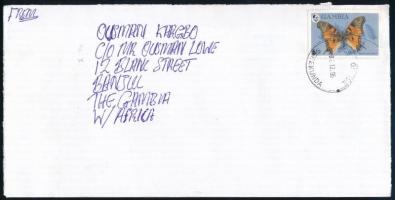 FROM
OUSMAN KARGBO
C/O MR OUSMAN LOWE
12 BLANC STREET
BANJUL
THE GAMBIA
W/AFRICA
GAMBIA